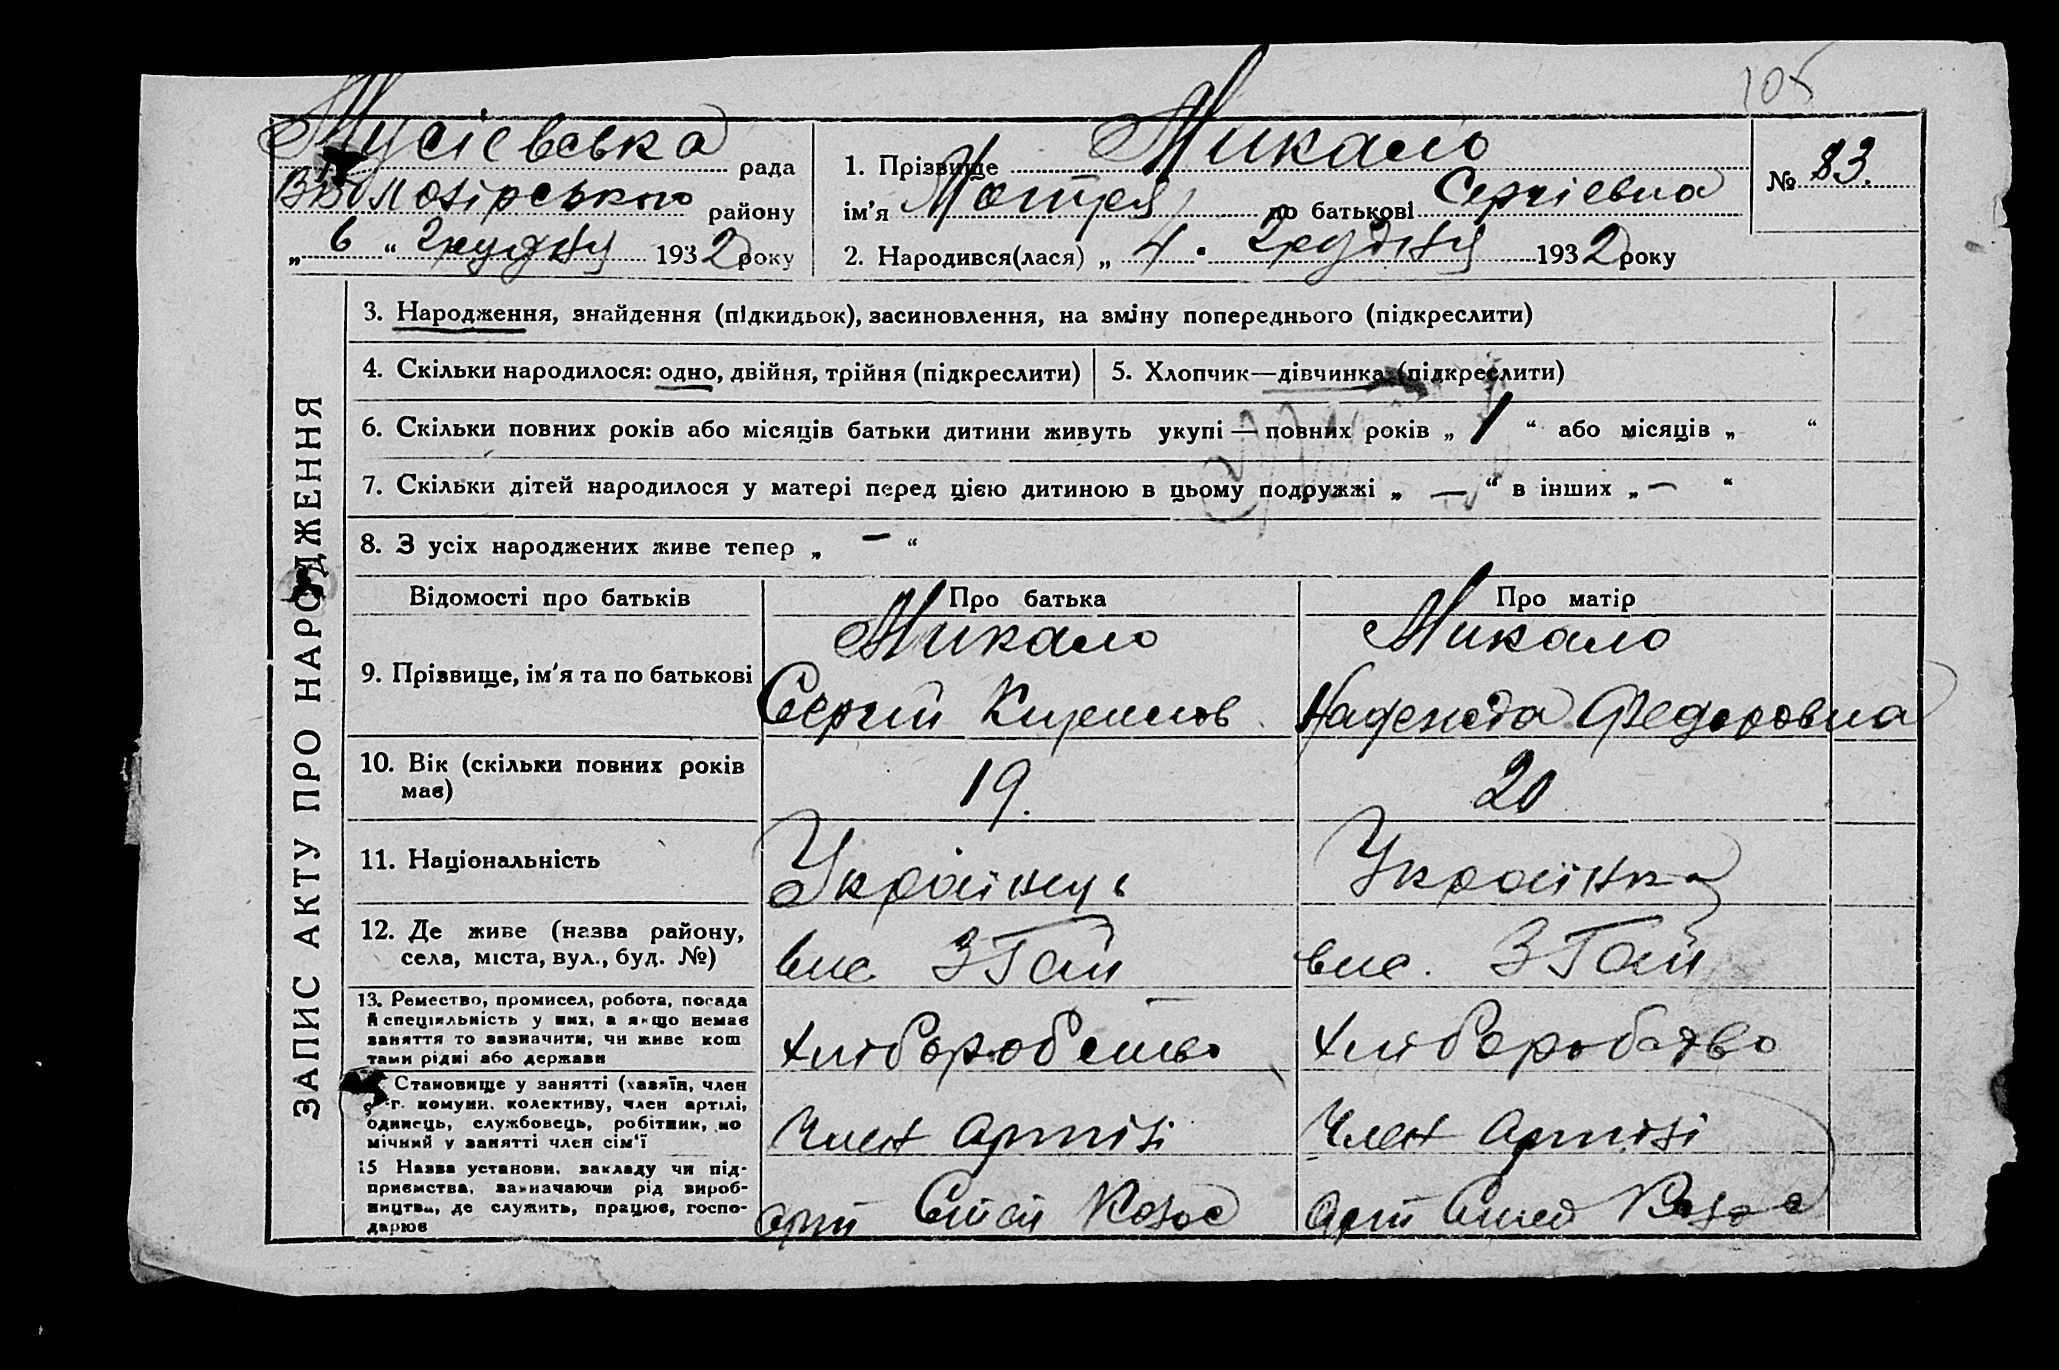 105
Мусіевська рада
ВБілозірського району
„ 6 “ грудня 1932 року
1. Прізвище Микало
ім'я Мотря по батькові Сергіевна
2. Народився(лася) „ 4 “ грудня 1932 року
№ 83.
ЗАПИС АКТУ ПРО НАРОДЖЕННЯ
3. Народження, знайдення (підкидьок), засиновлення, на зміну попереднього (підкреслити)
4. Скільки народилося: одно, двійня, трійня (підкреслити)
5. Хлопчик—дівчинка (підкреслити)
6. Скільки повних років або місяців батьки дитини живуть укупі — повних років „ 1 “ або місяців „ “
7. Скільки дітей народилося у матері перед цією дитиною в цьому подружжі „ — “ в інших „ — “
8. З усіх народжених живе тепер „ — “
Відомості про батьків
Про батька
Про матір
9. Прізвище, ім'я та по батькові
Микало
Сергій Кирилов
Микало
Надежда Федоровна
10. Вік (скільки повних років
має)
19.
20
11. Національність
Українець
Українка
12. Де живе (назва району,
села, міста, вул., буд. №)
вис. З Гай
вис. З Гай
13. Ремество, промисел, робота, посада
й спеціяльність у них, а якщо немає
заняття то зазначити, чи живе кош
тами рідні або держави
Хліборобство
Хліборобство
Становище у занятті (хазяїн, член
с.-г. комуни, колективу, член артілі,
одинець, службовець, робітник, по
мічний у занятті член сім'ї
Член артілі
Член артілі
15 Назва установи, закладу чи під-
приємства, зазначаючи рід вироб-
ництва, де служить, працює, госпо-
дарює
арт
арт